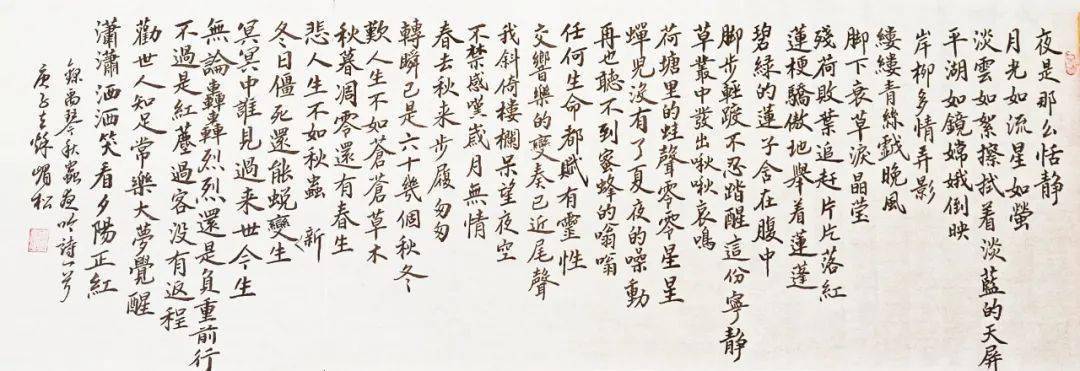 夜是那么恬静
月光如流星如萤
淡雲如絮擦拭着淡藍的天屏
平湖如鏡嫦娥倒映
岸柳多情弄影
縷縷青絲戲晚風
脚下衰草淚晶莹
殘荷敗葉追赶片片落紅
蓮梗驕傲地舉着蓮蓬
碧綠的蓮子舍在腹中
脚步輕踱不忍踏醒這份寧静
草叢中發出啾啾哀鳴
荷塘里的蛙聲零零星星
蟬兒沒有了夏夜的噪動
再也聽不到蜜蜂的嗡嗡
任何生命都賦有靈性
交響樂的變奏已近尾聲
我斜倚樓欄呆望夜空
不禁感嘆歲月無情
春去秋来步履匆匆
轉瞬已是六十幾個秋冬
歎人生不如蒼蒼草木
秋暮凋零還有春生
悲人生不如秋蟲
冬日僵死還能蜕變新生
冥冥中誰見過来世今生
無論轟轟烈烈還是負重前行
不過是紅塵過客没有返程
勸世人知足常樂大夢覺醒
瀟瀟洒洒笑看夕陽正紅
錄禹琴秋蟲夜吟詩一首
庚子